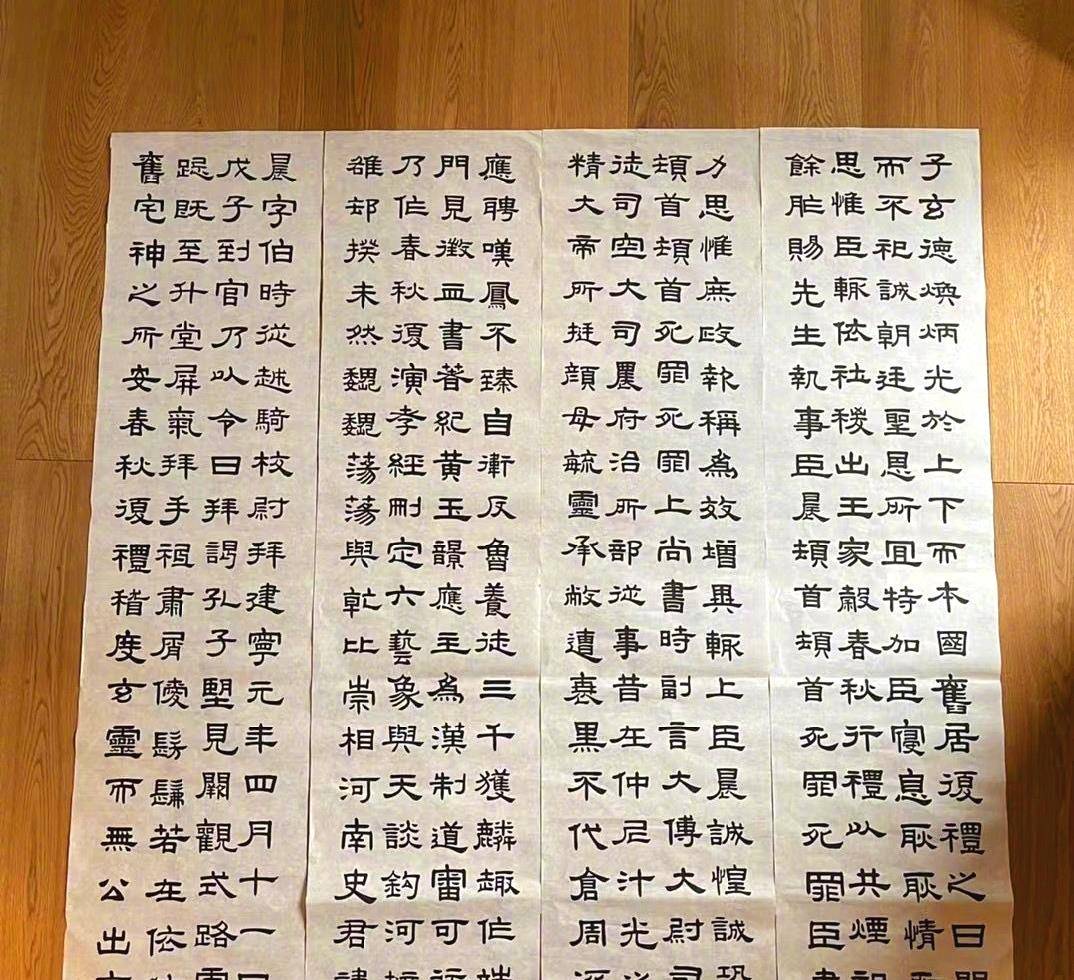 子玄德煥炳光於上下而本國舊居復禮之日
而不祀誠朝廷聖恩所宜特加臣寑息耿耿情
思惟臣輒依社稷出王家穀春秋行禮以共煙
餘胙賜先生執事臣晨頓首頓首死罪死罪臣
力思惟庶政報稱為效增異輒上臣晨誠惶誠
頓首頓首死罪死罪上尚書時副言大傅大尉
徒司空大司農府治所部從事昔在仲尼汁光
精大帝所挺顏母毓靈承敝遭衰黑不代倉周
應聘嘆鳳不臻自衛反魯養徒三千獲麟趣作
門見徵血書著紀黃玉韻應主為漢制道審可
乃作春秋復演孝經刪定六藝象與天談鈎河
雒却揆未然魏魏蕩蕩與乾比崇相河南史君
晨字伯時從越騎校尉拜建寧元年四月十一
戊子到官乃以令日拜謁孔子望見闕觀式路
跽既至升堂屏氣拜手祖肅屑僾髣髴若在依
舊宅神之所安春秋復禮稽度玄靈而無公出